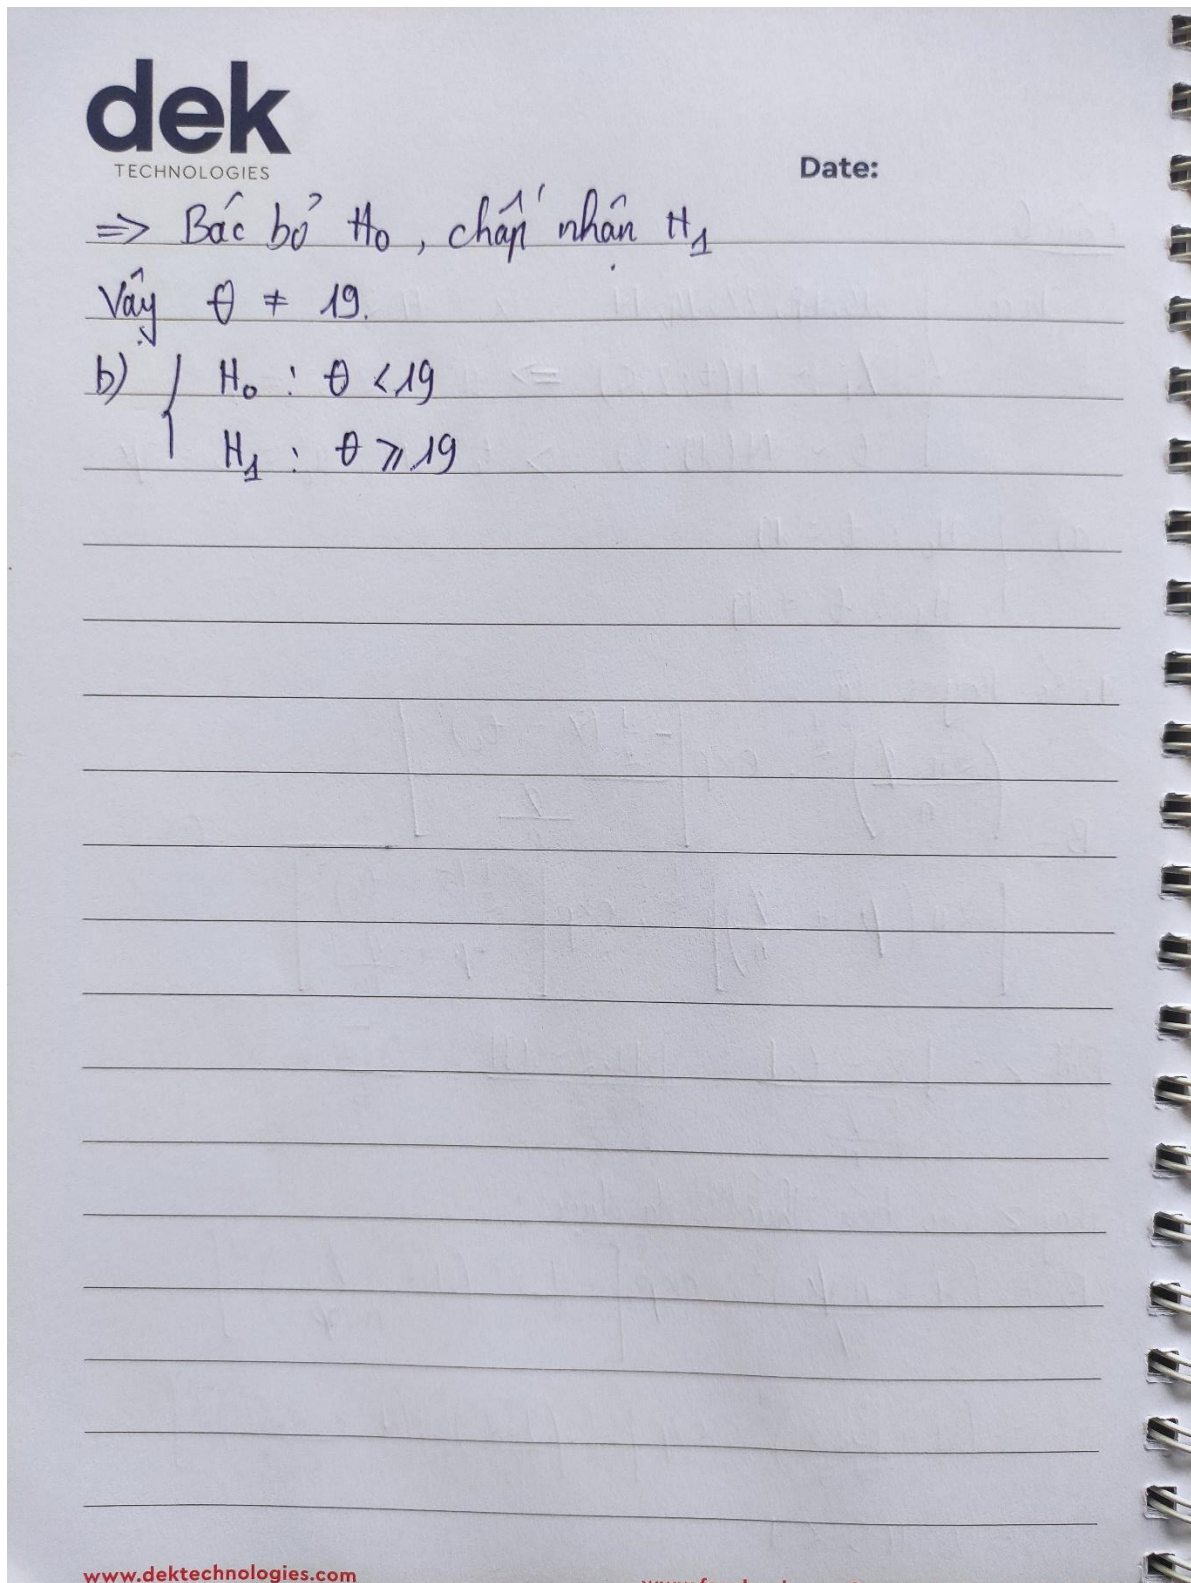 dek
TECHNOLOGIES
Date:
=> Bác bỏ H₀, chấp nhận H₁
Vậy θ ≠ 19.
b) { H₀ : θ < 19
H₁ : θ ⩾ 19
www.dektechnologies.com